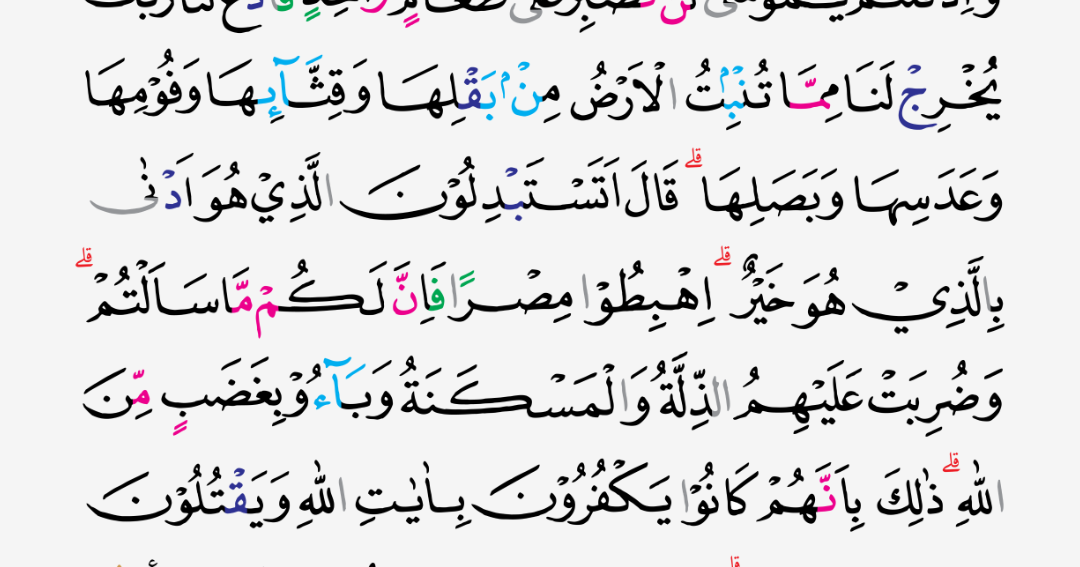 يُخْرِجْ لَنَا مِمَّا تُنْۢبِتُ الْاَرْضُ مِنْۢ بَقْلِهَا وَقِثَّآئِهَا وَفُوْمِهَا
وَعَدَسِهَا وَبَصَلِهَا ۗ قَالَ اَتَسْتَبْدِلُوْنَ الَّذِيْ هُوَ اَدْنٰى
بِالَّذِيْ هُوَ خَيْرٌ ۗ اِهْبِطُوْا مِصْرًا فَاِنَّ لَكُمْ مَّا سَاَلْتُمْ ۗ
وَضُرِبَتْ عَلَيْهِمُ الذِّلَّةُ وَالْمَسْكَنَةُ وَبَآءُوْ بِغَضَبٍ مِّنَ
اللّٰهِ ۗ ذٰلِكَ بِاَنَّهُمْ كَانُوْا يَكْفُرُوْنَ بِاٰيٰتِ اللّٰهِ وَيَقْتُلُوْنَ